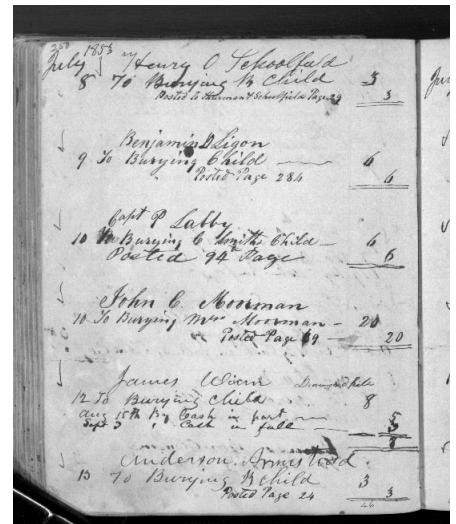 250
July 1853
Henry O Schoolfield
8 To Burying B Child 3
Posted to Harmon & Schoolfield Page 29 3
Benjamin D Ligon
9 To Burying Child 6
Posted Page 284 6
Capt P Labby
10 To Burying C Smiths Child 6
Posted 94 Page 6
John C. Moorman
10 To Burying Mrs Moorman 20
Posted Page 69 20
James
12 To Burying Child 8
Aug 15th By Cash in part 5
Sept 3 " Cash in full 3
8
Anderson Armistead
13 To Burying B child 3
Posted Page 24 3